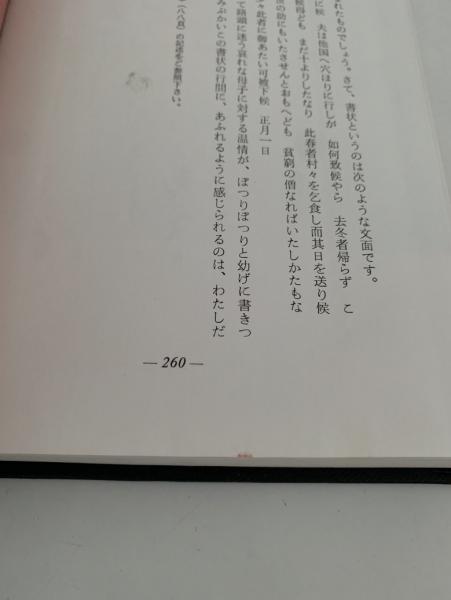 れたものでしょう。さて、書状というのは次のような文面です。
に候　夫は他国へ穴ほりに行しが　如何致候やら　去冬者帰らず　こ
候得ども　まだ十よりしたなり　此春者村々を乞食し而其日を送り候
の助にもいたさせんとおもへども　貧窮の僧なればいたしかたもな
々此者に御あたい可被下候　正月一日
て路頭に迷う哀れな母子に対する温情が、ぽつりぽつりと幼げに書きつ
みぶかいこの書状の行間に、あふれるように感じられるのは、わたしだ
（八八頁）の記述をご参照下さい。
— 260 —